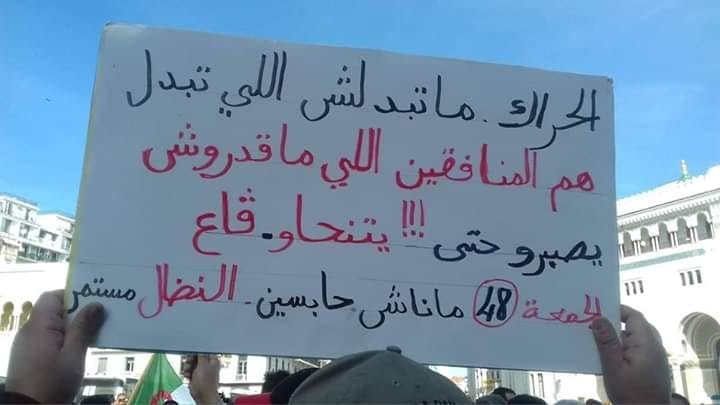 الحراك. ماتبدلش اللي تبدل
هم المنافقين اللي ماقدروش
يصبرو حتى !!! يتنحاو. ڨاع
الجمعة 48 ماناش حابسين. النضال مستمر